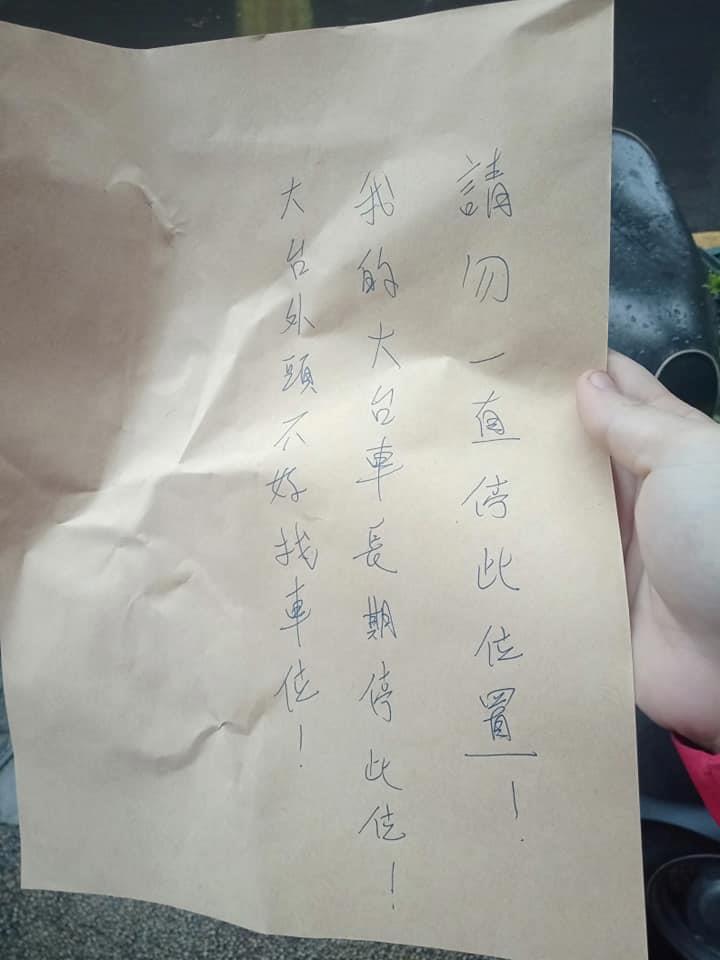 請勿一直停此位置！
我的大台車長期停此位！
大台外頭不好找車位！